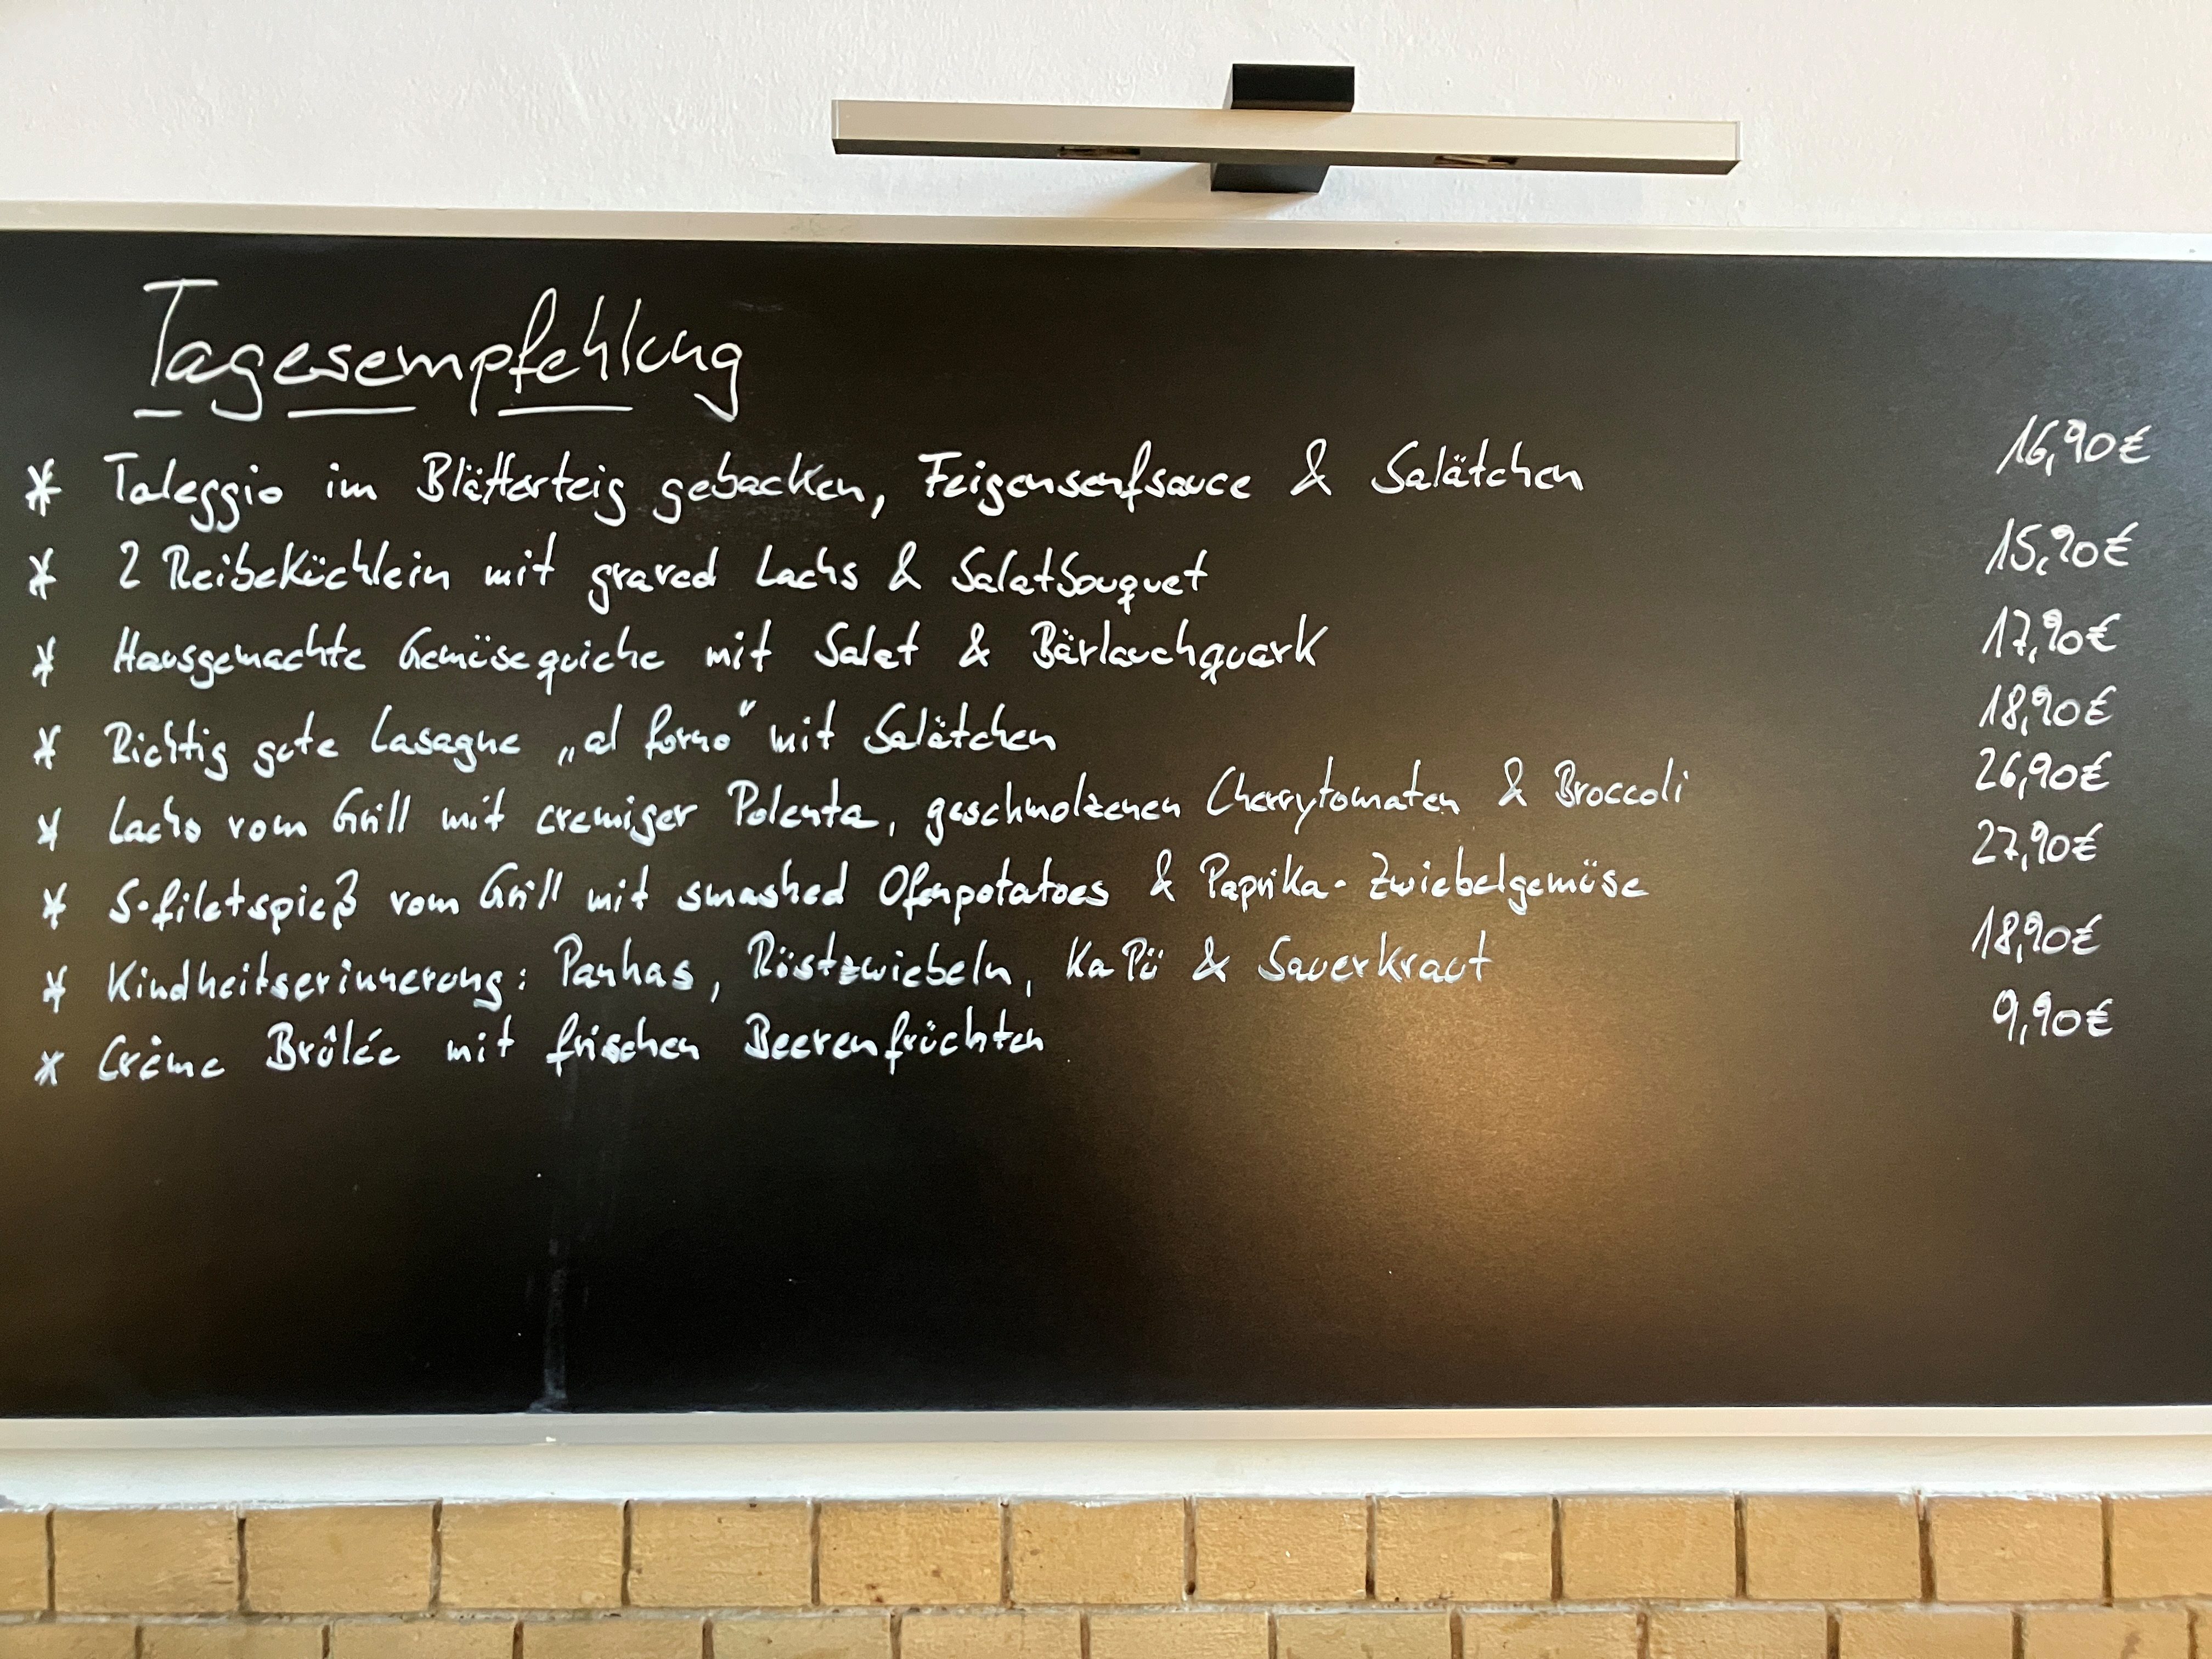 Tagesempfehlung
* Taleggio im Blätterteig gebacken, Feigensenfsauce & Salätchen 16,90€
* 2 Reibeküchlein mit graved Lachs & Salatbouquet 15,90€
* Hausgemachte Gemüsequiche mit Salat & Bärlauchquark 17,90€
* Richtig gute Lasagne „al forno" mit Salätchen 18,90€
* Lachs vom Grill mit cremiger Polenta, geschmolzenen Cherrytomaten & Broccoli 26,90€
* S.filetspieß vom Grill mit smashed Ofenpotatoes & Paprika-Zwiebelgemüse 27,90€
* Kindheitserinnerung: Panhas, Röstzwiebeln, KaPü & Sauerkraut 18,90€
* Crème Brûlée mit frischen Beerenfrüchten 9,90€